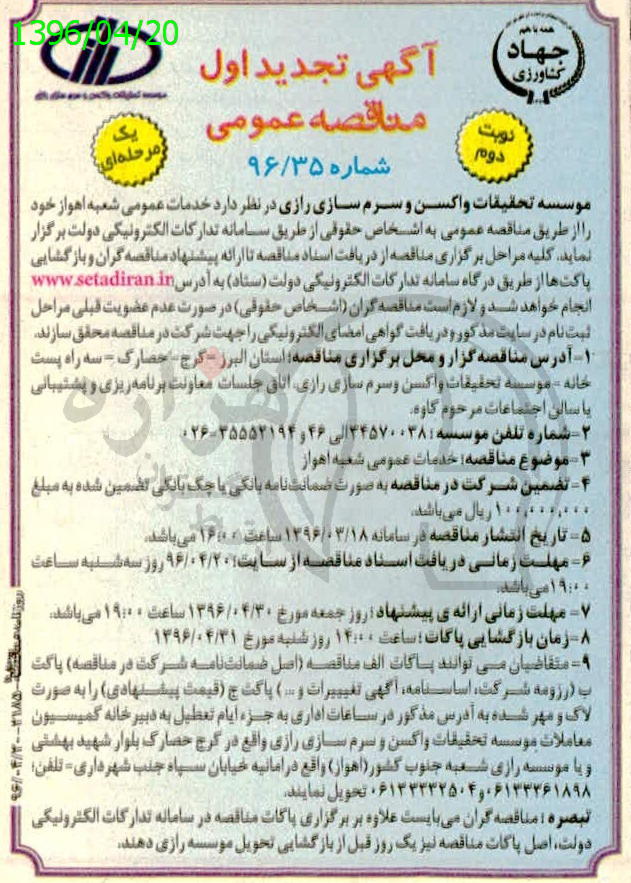 1396/04/20
همه با هم
جهاد
کشاورزی
موسسه تحقیقات واکسن و سرم سازی رازی
آگهی تجدید اول
مناقصه عمومی
یک
مرحله‌ای
نوبت
دوم
شماره ۹۶/۳۵
موسسه تحقیقات واکسن و سرم سازی رازی در نظر دارد خدمات عمومی شعبه اهواز خود
را از طریق مناقصه عمومی به اشخاص حقوقی از طریق سامانه تدارکات الکترونیکی دولت برگزار
نماید. کلیه مراحل برگزاری مناقصه از دریافت اسناد مناقصه تا ارائه پیشنهاد مناقصه گران و بازگشایی
پاکت‌ها از طریق درگاه سامانه تدارکات الکترونیکی دولت (ستاد) به آدرس www.setadiran.ir
انجام خواهد شد و لازم است مناقصه گران (اشخاص حقوقی) در صورت عدم عضویت قبلی مراحل
ثبت نام در سایت مذکور و دریافت گواهی امضای الکترونیکی را جهت شرکت در مناقصه محقق سازند.
۱- آدرس مناقصه گزار و محل برگزاری مناقصه: استان البرز - کرج - حصارک - سه راه پست
خانه - موسسه تحقیقات واکسن وسرم سازی رازی. اتاق جلسات معاونت برنامه ریزی و پشتیبانی
یا سالن اجتماعات مرحوم کاوه.
۲- شماره تلفن موسسه: ۳۴۵۷۰۰۳۸ الی ۴۶ و ۳۵۵۵۲۱۹۴-۰۲۶
۳- موضوع مناقصه: خدمات عمومی شعبه اهواز
۴- تضمین شرکت در مناقصه به صورت ضمانت‌نامه بانکی یا چک بانکی تضمین شده به مبلغ
۱۰۰,۰۰۰,۰۰۰ ریال می‌باشد.
۵- تاریخ انتشار مناقصه در سامانه ۱۳۹۶/۰۳/۱۸ ساعت ۱۶:۰۰ می‌باشد.
۶- مهلت زمانی دریافت اسناد مناقصه از سایت: ۹۶/۰۴/۲۰ روز سه‌شنبه ساعت
۱۹:۰۰ می‌باشد.
۷- مهلت زمانی ارائه ی پیشنهاد: روز جمعه مورخ ۱۳۹۶/۰۴/۳۰ ساعت ۱۹:۰۰ می‌باشد.
۸- زمان بازگشایی پاکات: ساعت ۱۴:۰۰ روز شنبه مورخ ۱۳۹۶/۰۴/۳۱
۹- متقاضیان می توانند پاکات الف مناقصه (اصل ضمانت‌نامه شرکت در مناقصه) پاکت
ب (رزومه شرکت، اساسنامه، آگهی تغییرات و ...) پاکت ج (قیمت پیشنهادی) را به صورت
لاک و مهر شده به آدرس مذکور در ساعات اداری به جزء ایام تعطیل به دبیرخانه کمیسیون
معاملات موسسه تحقیقات واکسن و سرم سازی رازی واقع در کرج حصارک بلوار شهید بهشتی
و یا موسسه رازی شعبه جنوب کشور (اهواز) واقع در امانیه خیابان سپاه جنب شهرداری - تلفن:
۰۶۱۳۳۳۶۱۸۹۸ و ۰۶۱۳۳۳۳۲۵۰۴ تحویل نمایند.
تبصره: مناقصه گران می‌بایست علاوه بر برگزاری پاکات مناقصه در سامانه تدارکات الکترونیکی
دولت، اصل پاکات مناقصه نیز یک روز قبل از بازگشایی تحویل موسسه رازی دهند.
هزاره